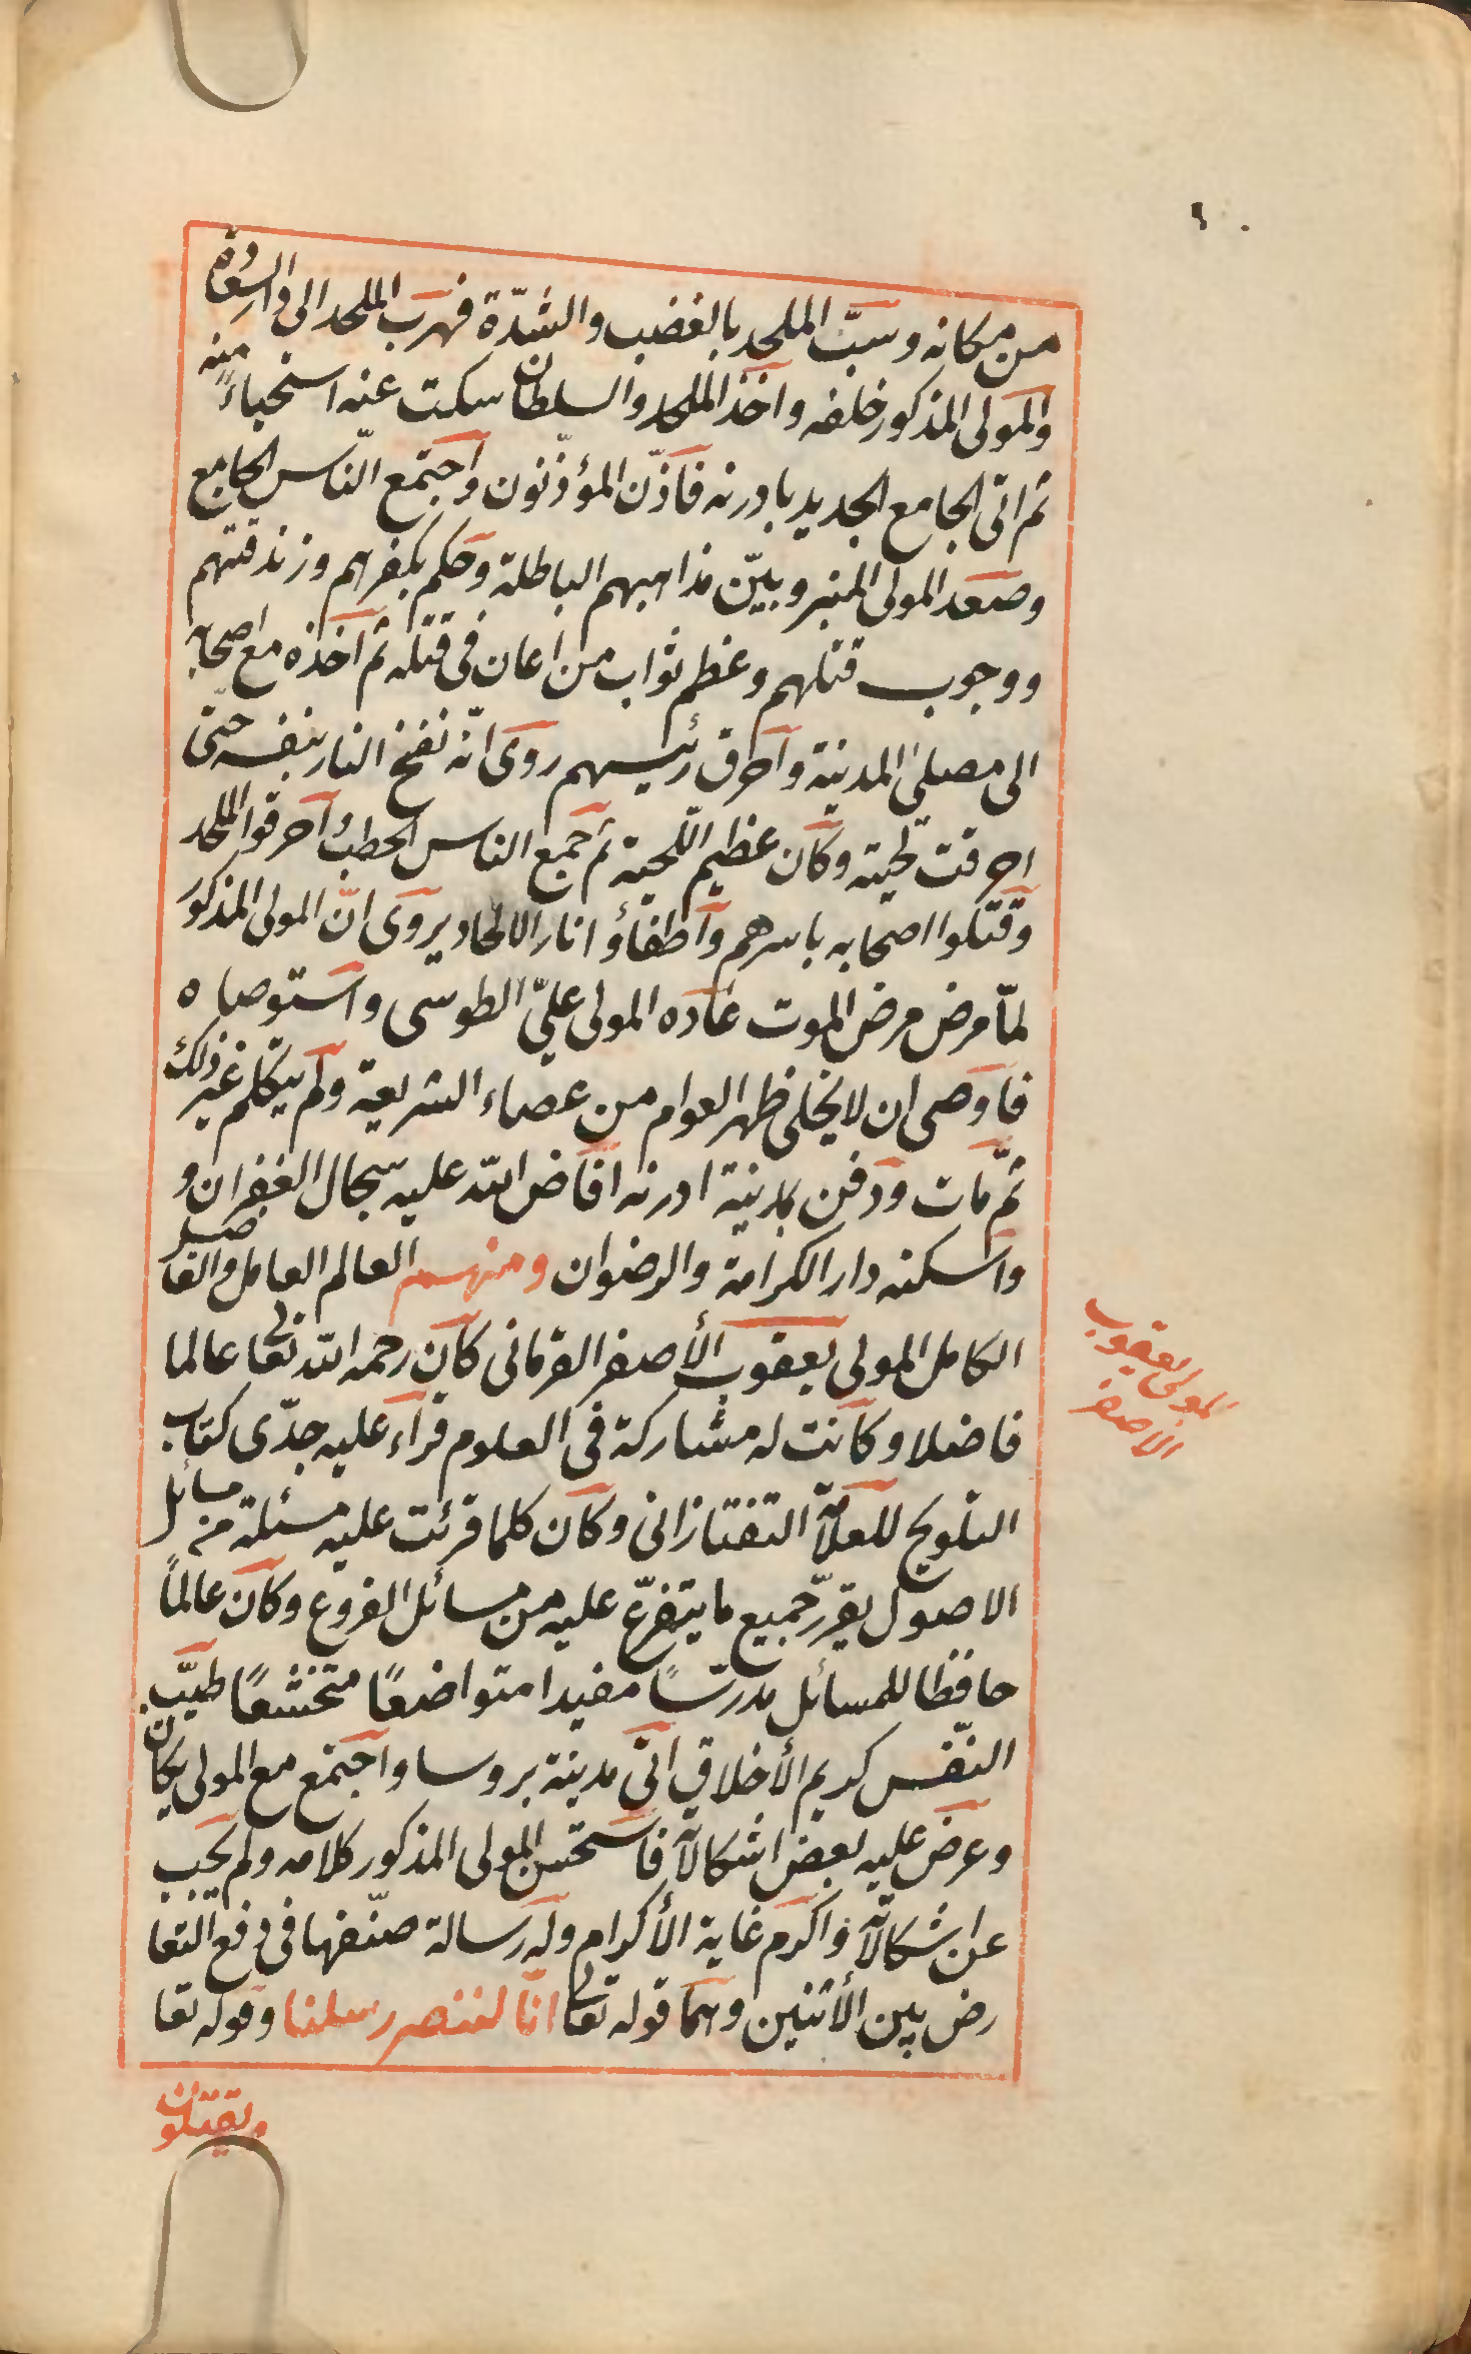 ٦٠
من مكانه وسبّ الملحد بالغضب والشدّة فهرب الملحد الى دار السعادة
والمولى المذكور خلفه واخذ الملحد والسلطان سكت عنه استحياءً منه
ثم اتى الجامع الجديد بادرنه فاذّن المؤذّنون واجتمع النّاس الجامع
وصعد المولى المنبر وبيّن مذاهبهم الباطلة وحكم بكفرهم وزندقتهم
ووجوب قتلهم وعظم ثواب من اعان فى قتله ثم اخذه مع اصحابه
الى مصلى المدينة واحرق رئيسهم روى انّه نفخ النار بنفسه حتّى
احرقت لحيته وكان عظيم اللّحية ثم جمع الناس الحطب واحرقوا الملحد
وقتلوا اصحابه باسرهم واطفاؤا نار الالحاد يروى انّ المولى المذكور
لمّا مرض مرض الموت عاده المولى علىّ الطوسى واستوصاه
فاوصى ان لا يخلى ظهر العوام من عصاء الشريعة ولم يتكلم غير ذلك
ثمّ مات ودفن بمدينة ادرنه افاض الله عليه سجال الغفران و
واسكنه دار الكرامة والرضوان ومنهم العالم العامل والفاضل
الكامل المولى يعقوب الأصفر القرمانى كان رحمه الله تعالى عالما
فاضلا وكانت له مشاركة فى العلوم قراء عليه جدّى كتاب
التلويح للعلاّ التفتازانى وكان كلما قرئت عليه مسئلة من مسائل
الاصول يقرّر جميع ما يتفرّع عليه من مسائل الفروع وكان عالماً
حافظا للمسائل مدرّسًا مفيدا متواضعًا متخشعًا طيّب
النفّس كريم الأخلاق اتى مدينة بروسا واجتمع مع المولى يكان
وعرض عليه بعض اشكالآ فاستحسن المولى المذكور كلامه ولم يجب
عن اشكالآته واكرم غاية الأكرام وله رسالة صنّفها فى دفع التعا
رض بين الأثنين وهما قوله تعالى انّا لننصر رسلنا وقوله تعا
ويقتلون
المولى يعقوب
الاصفر